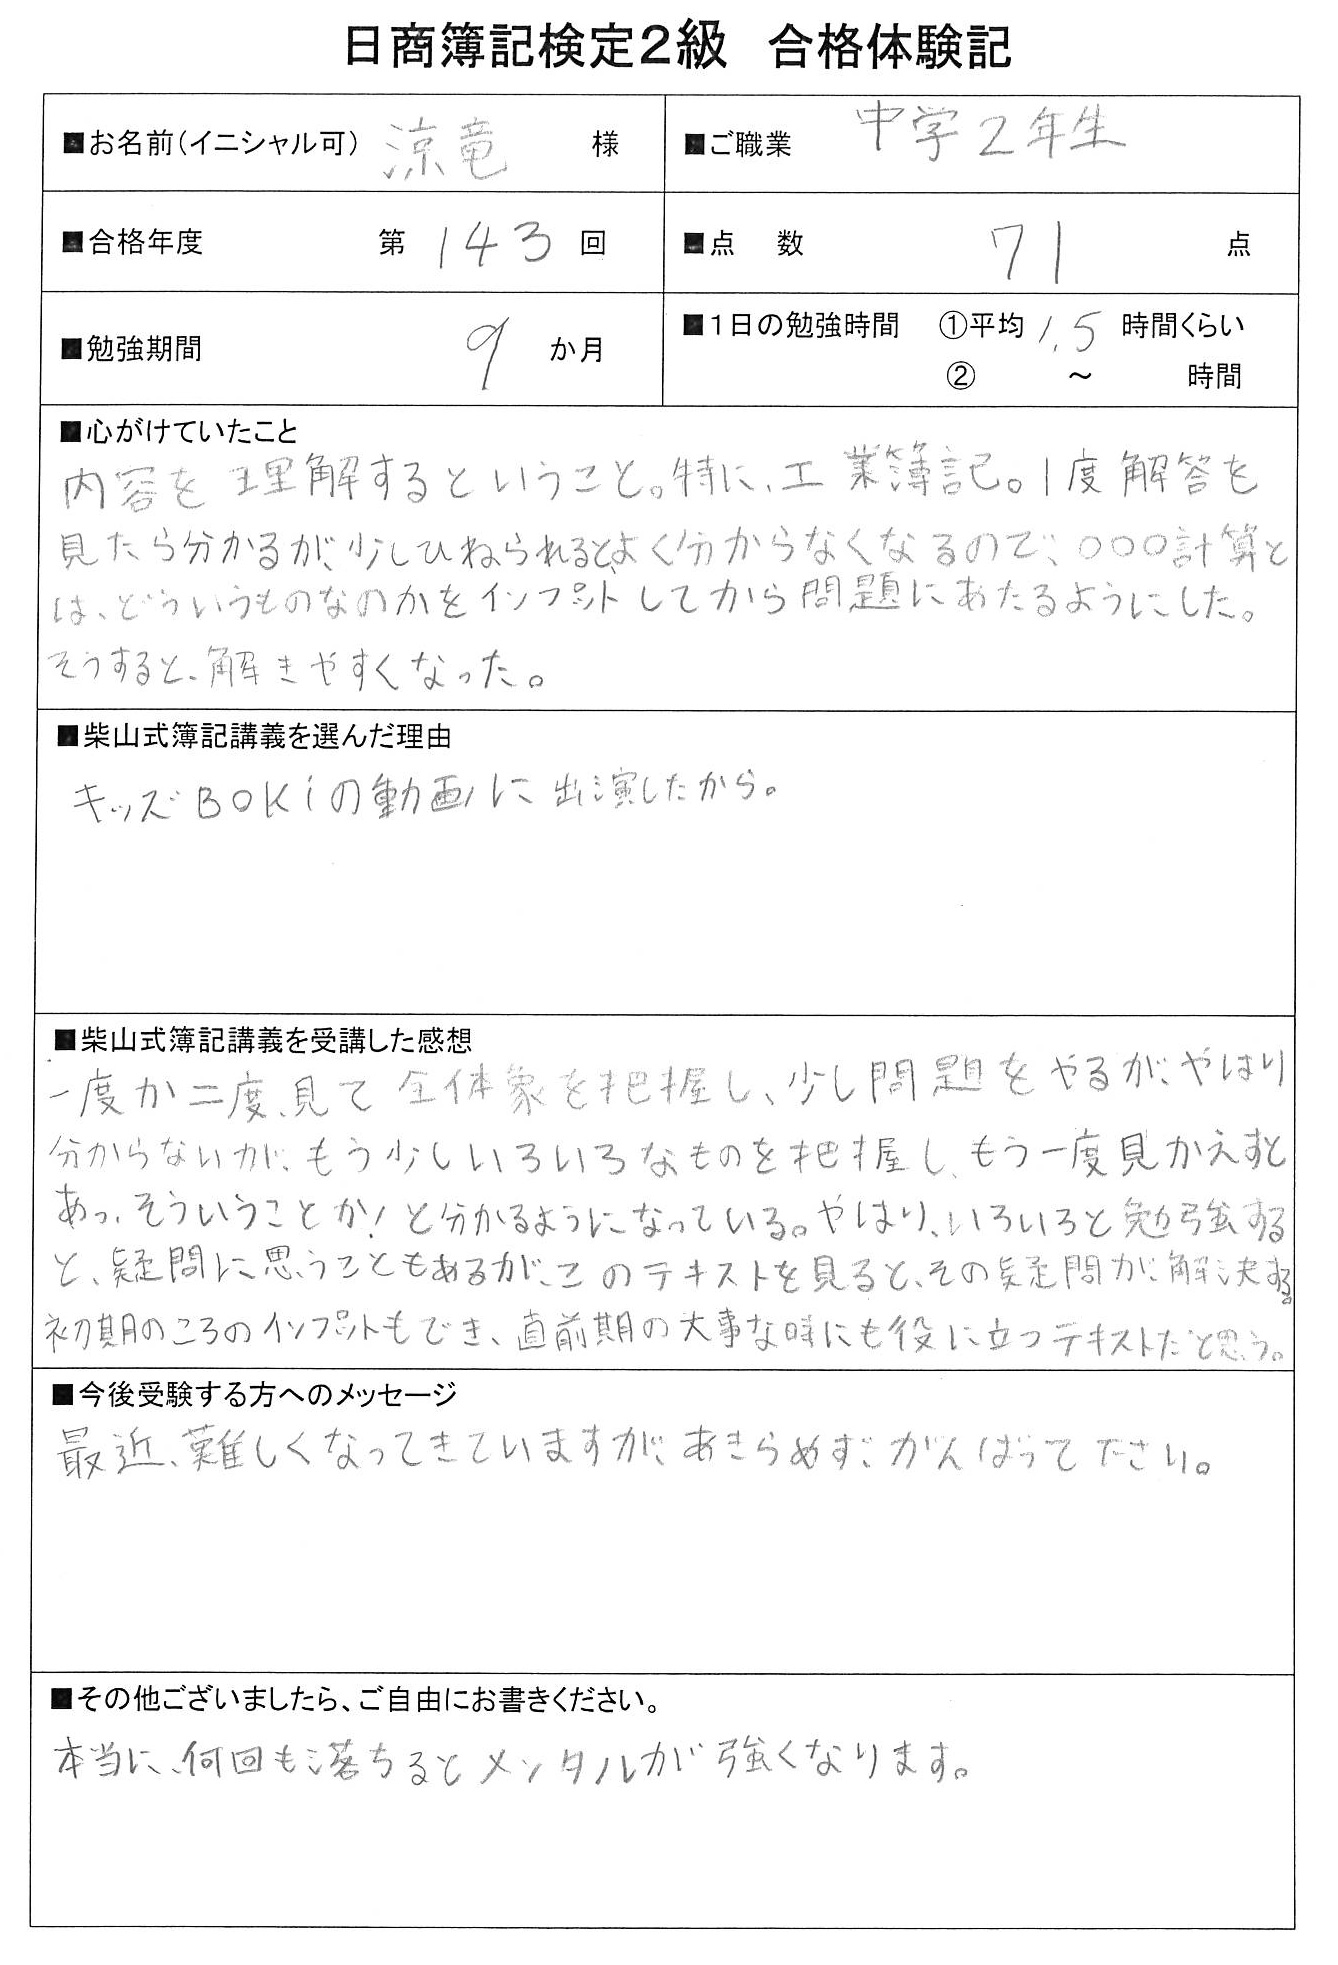 日商簿記検定2級　合格体験記
■お名前(イニシャル可) 涼竜 様
■ご職業 中学2年生
■合格年度 第 143 回
■点　数 71 点
■勉強期間 9 か月
■1日の勉強時間 ①平均 1.5 時間くらい
② ～ 時間
■心がけていたこと
内容を理解するということ。特に、工業簿記。1度解答を
見たら分かるが、少しひねられると、よく分からなくなるので、○○○計算と
は、どういうものなのかをインプットしてから問題にあたるようにした。
そうすると、解きやすくなった。
■柴山式簿記講義を選んだ理由
キッズBOKiの動画に出演したから。
■柴山式簿記講義を受講した感想
一度か二度、見て全体象を把握し、少し問題をやるが、やはり
分からないが、もう少しいろいろなものを把握し、もう一度見かえすと
あっ、そういうことか!と分かるようになっている。やはり、いろいろと勉強する
と、疑問に思うこともあるが、このテキストを見ると、その疑問が解決する。
初期のころのインプットもでき、直前期の大事な時にも役に立つテキストだと思う。
■今後受験する方へのメッセージ
最近、難しくなってきていますが、あきらめず、がんばって下さい。
■その他ございましたら、ご自由にお書きください。
本当に、何回も落ちるとメンタルが強くなります。